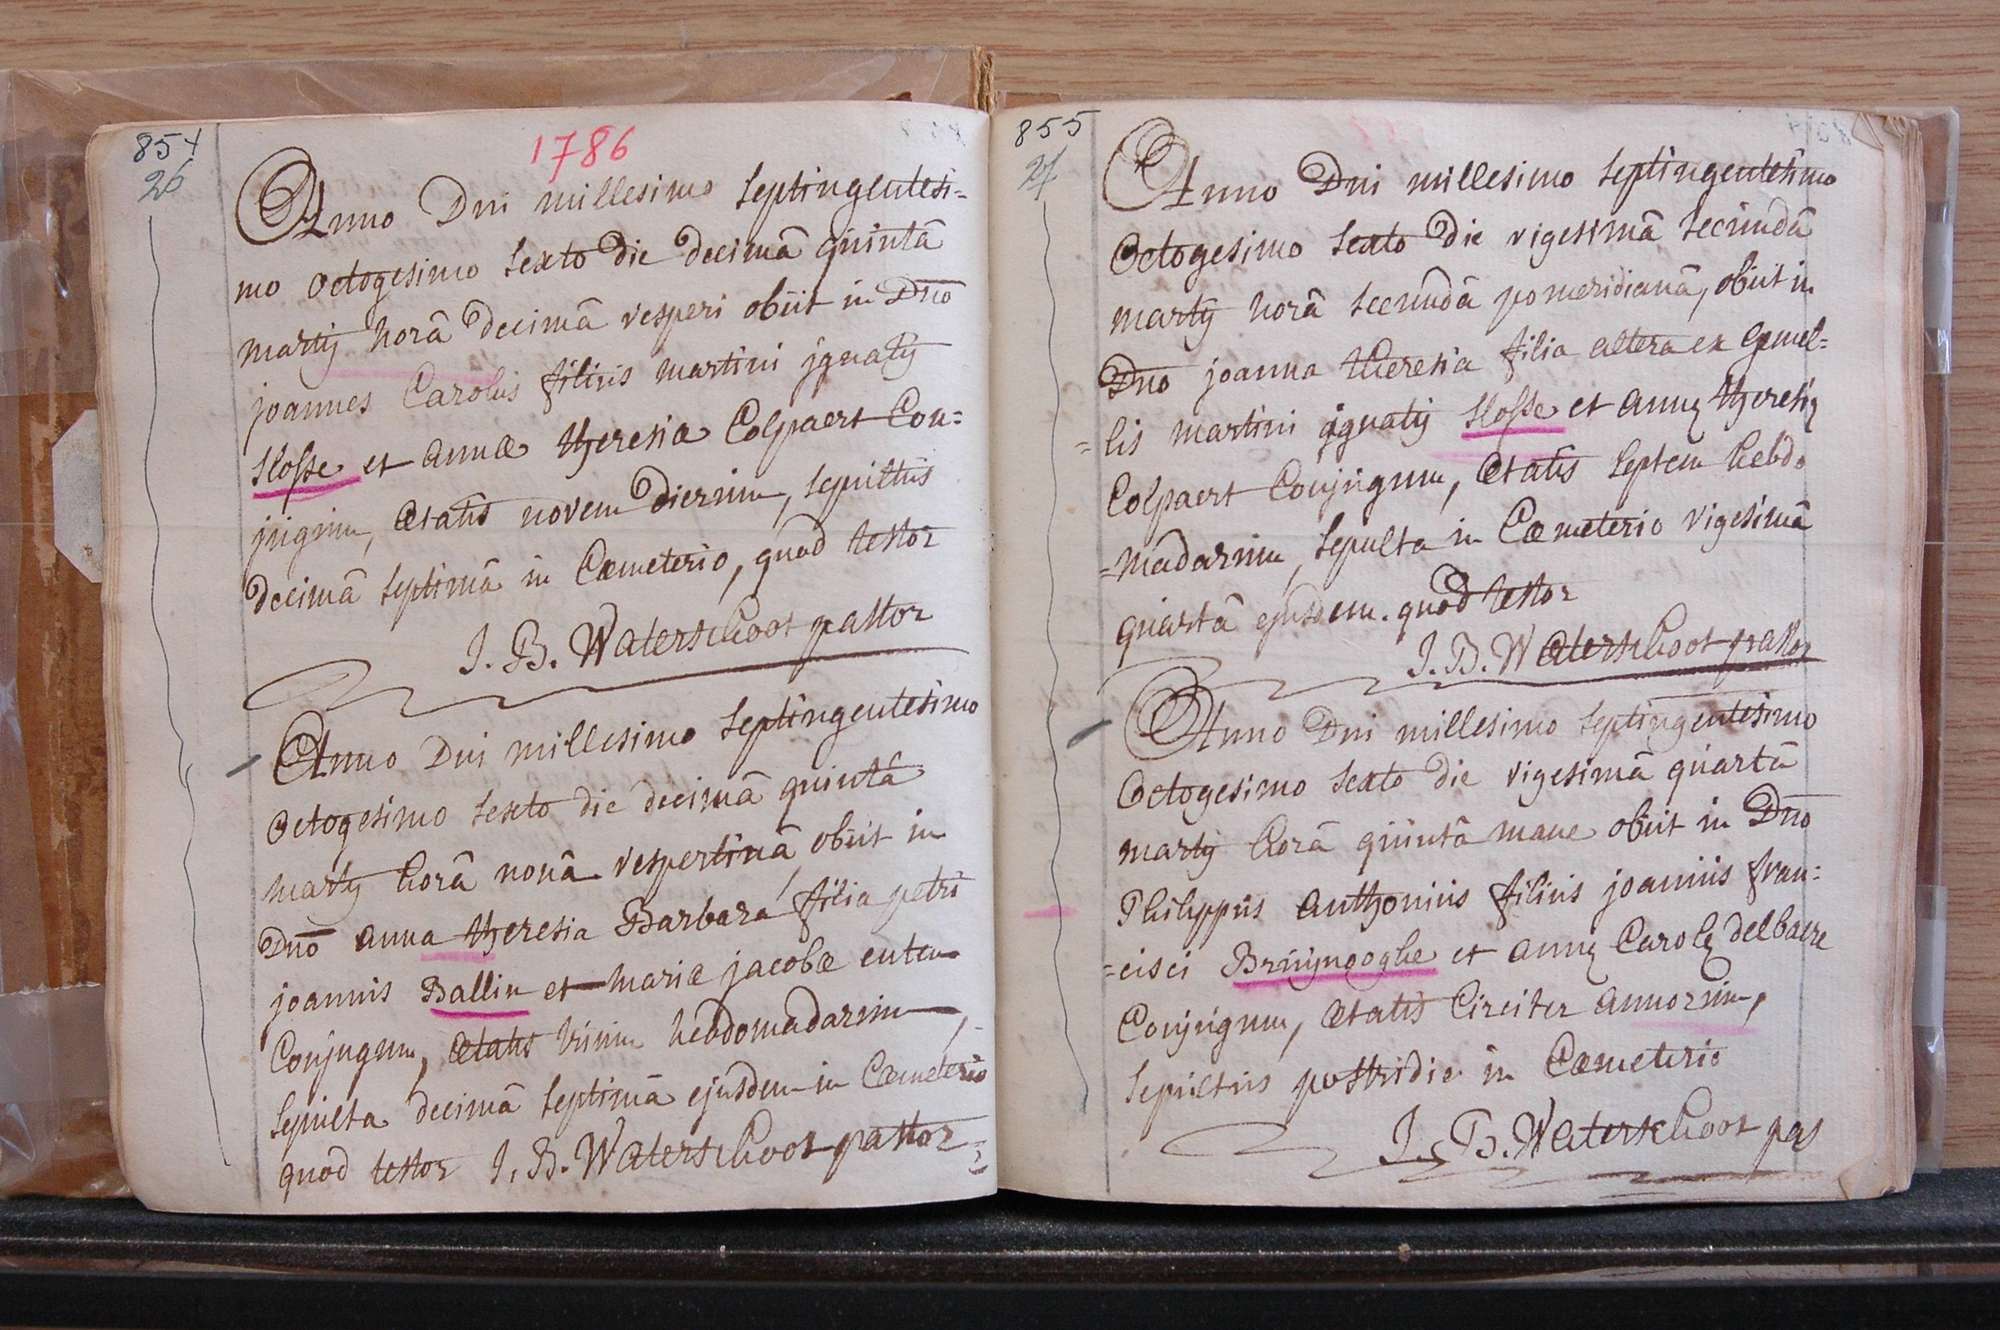 854
26
1786
Anno Dni millesimo septingentesi=
mo octogesimo sexto die decimâ quintâ
martij horâ decimâ vesperi obiit in Dno
joannes Carolus filius martini jgnatij
Slosse et annæ theresiæ Colpaert Con=
jugum, ætatis novem dierum, sepultus
decimâ septimâ in Cæmeterio, quod testor
J. B. Waterschoot pastor
Anno Dni millesimo septingentesimo
octogesimo sexto die decimâ quintâ
martij horâ nonâ vespertinâ, obiit in
Dno anna theresia Barbara filia petri
joannis Ballin et mariæ jacobæ
Conjugum, ætatis trium hebdomadarum,
sepulta decimâ septimâ ejusdem in Cæmeterio
quod testor J. B. Waterschoot pastor
855
27
Anno Dni millesimo septingentesimo
Octogesimo sexto die vigesimâ secundâ
martij horâ secundâ pomeridianâ, obiit in
Dno joanna theresia filia altera ex Gemel=
=lis martini jgnatij Slosse et annę theresię
Colpaert Conjugum, ætatis septem hebdo
=madarum, sepulta in Cæmeterio vigesimâ
quartâ ejusdem. quod testor
J. B. Waterschoot pastor
Anno Dni millesimo septingentesimo
Octogesimo sexto die vigesimâ quartâ
martij horâ quintâ mane obiit in Dno
Philippus Anthonius filius joannis fran=
=cisci Bruijnooghe et annę Carolę delbaere
Conjugum, ætatis Circiter annorum,
sepultus postridie in Cæmeterio
J. B. Waterschoot pas